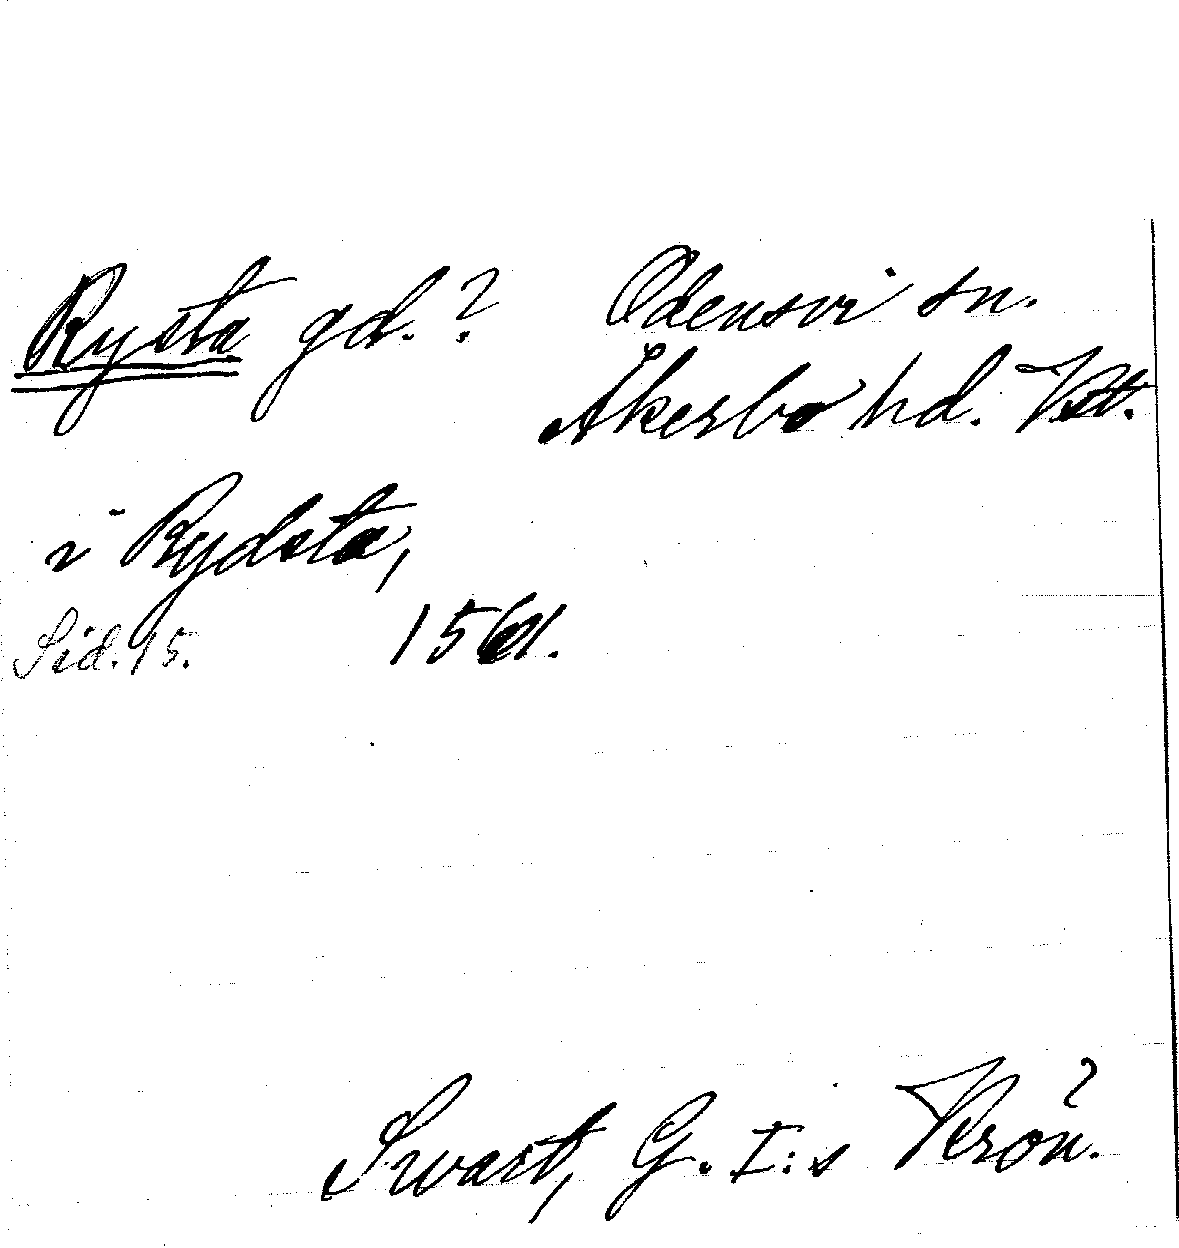 Rysta gd.? Odensvi sn.
Åkerbo hd. Vst.
i Rydsta,
Sid. 15. 1561.
Swart, G. I:s Krön.